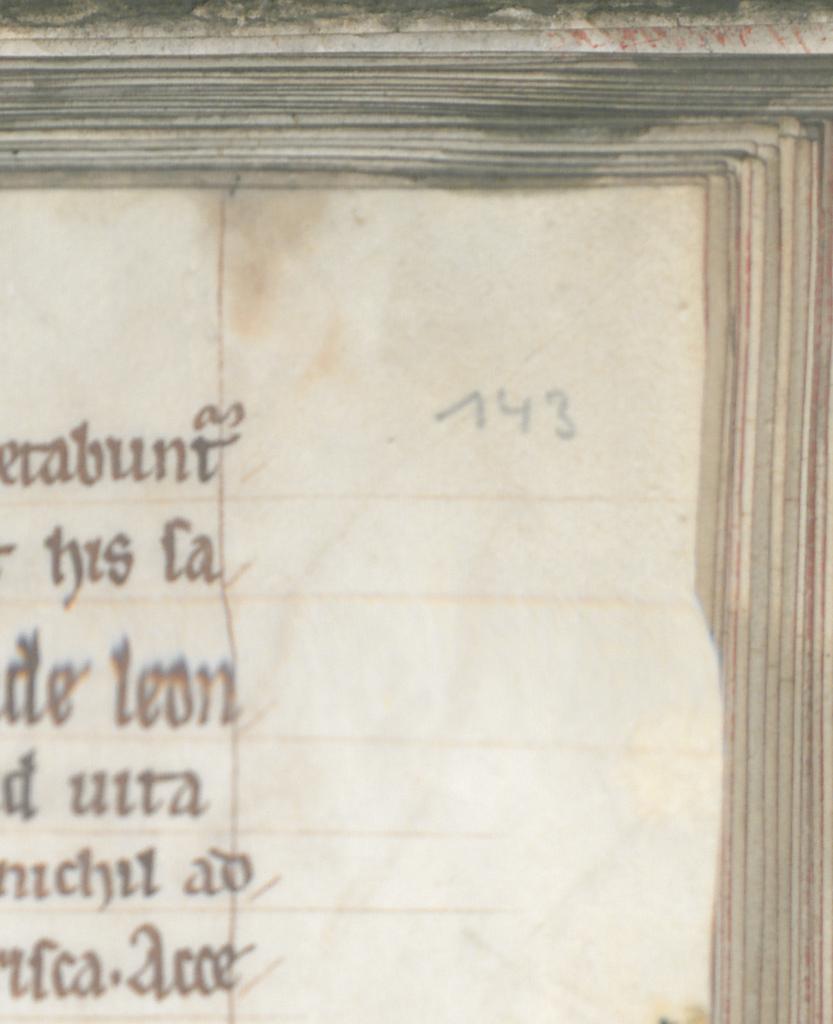 143
etabunt᷑
his sa
de leon
d uita
nichil ad
risca. Acce